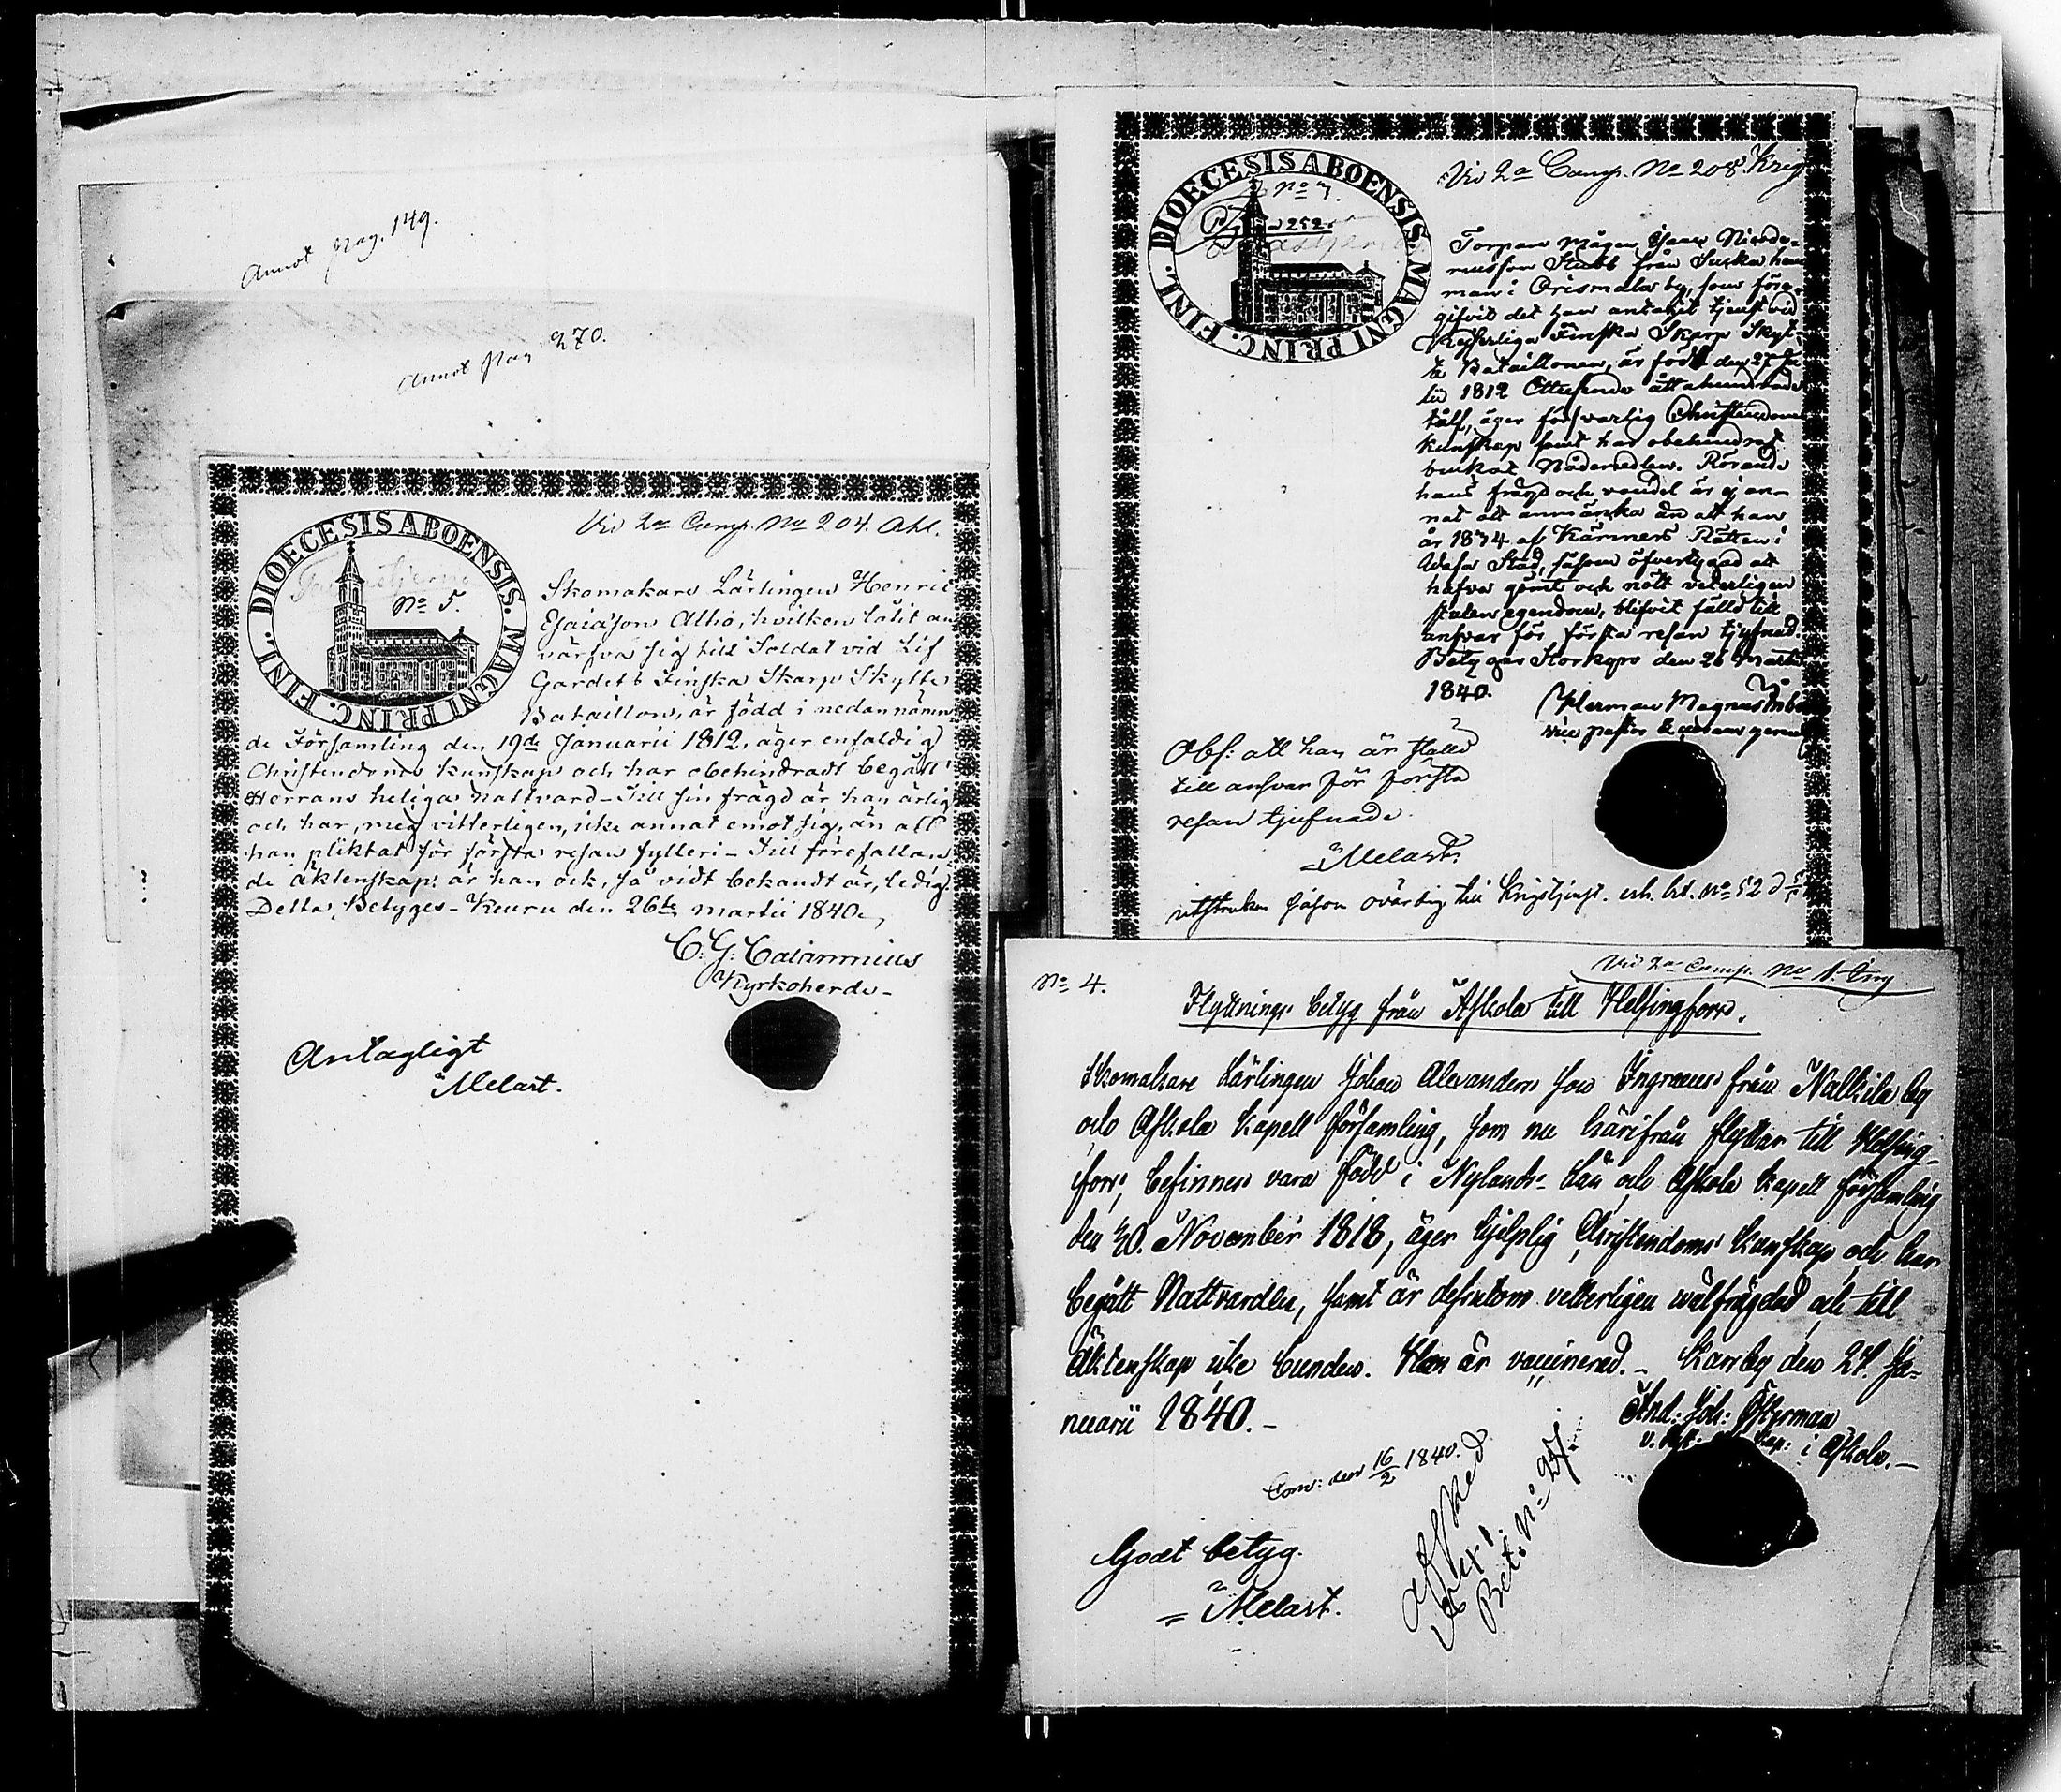 Annot pag. 149.
Annot pag 270.
Vid 2a Comp. No 204. Ahl.
DIOECESIS ABOENSIS. MAGNI PRINC. FINL.
No 5.
Skomakare Lärlingen Henric
Esaiasson Altio, hvilken låtit an
värfva sig till Soldat vid Lif
Gardets Finska Skarp Skytte
Bataillon, är född i nedannämn-
de Församling den 19de Januarii 1812, äger enfaldig
Christendoms kunskap och har obehindradt begått
Herrans heliga nattvard - Till sin frägd är han ärlig
och har, mig vitterligen, icke annat emot sig, än att
han pliktat för första resan fylleri - Till förefallan
de äktenskap är han ock, så vidt bekandt är, ledig.
Detta Betyges - Keuru den 26te martii 1840,
C. G. Calamnius
Kyrkoherde -
Antagligt
Melart.
Vid 2a Comp. No 208 Krig
DIOECESIS ABOENSIS. MAGNI PRINC. FINL.
No 7.
252
Torpare mågen Isaac Nicode-
musson Stubb från
man i Orismala by, som före-
gifvit det han antagit tjenst vid
Kejserliga Finska Skarp Skyt-
te Bataillonen, är född den 27
1812 Ettusende åttahundrade
tolf, äger försvarlig Christendoms
kunskap samt har obehindradt
brukat Nådemedlen. Rörande
hans frägd och vandel är ej an-
nat att anmärka än att han
år 1834 af Kämners Rätten i
Wasa Stad, såsom öfvertygad att
hafva gömt och nött veterligen
stulen egendom, blifvit fälld till
ansvar för första resan tjufnad.
Betygar Storkyro den 26 Martii
1840.
Herman Magnus
vice pastor
Obs: att han är fälld
till ansvar för första
resan tjufnad.
Melart.
utstruken såsom ovärdig till Krigstjenst. enl. bet. No 52 d
No 4.
Vid 2a Comp. No 1. Eng
Flyttnings betyg från Askola till Helsingfors.
Skomakare Lärlingen Johan Alexanders son Ingraeus från Nalkila by
och Askola Kapell församling, som nu härifrån flyttar till Helsing-
fors, befinnes vara född i Nylands Län och Askola Kapell församling
den 30. November 1818, äger hjelplig Christendoms kunskap och har
begått Nattvarden, samt är dessutom vetterligen wälfrägdad och till
Äktenskap icke bunden. Han är vaccinerad. - Karrby den 24. Ja-
nuarii 1840. -
And: Joh: Österman
v. Past: Kap: i Askola. -
Com: den 16/2 1840.
Godt betyg.
Melart.
Afsked
Bet: No 247.